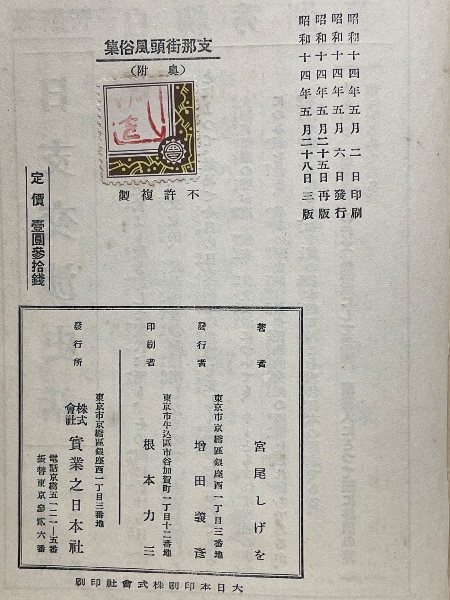 昭和十四年五月二日印刷
昭和十四年五月六日發行
昭和十四年五月二十五日再版
昭和十四年五月二十八日三版
集俗風頭街那支
(附奥)
製複許不
定價 壹圓參拾錢
著者 宮尾しげを
東京市京橋區銀座西一丁目三番地
發行者 增田義彥
東京市牛込區市谷加賀町一丁目十二番地
印刷者 根本力三
東京市京橋區銀座西一丁目三番地
發行所 株式會社 實業之日本社
電話京橋五一二一—五番
振替東京參貳六番
刷印社會式株刷印本日大